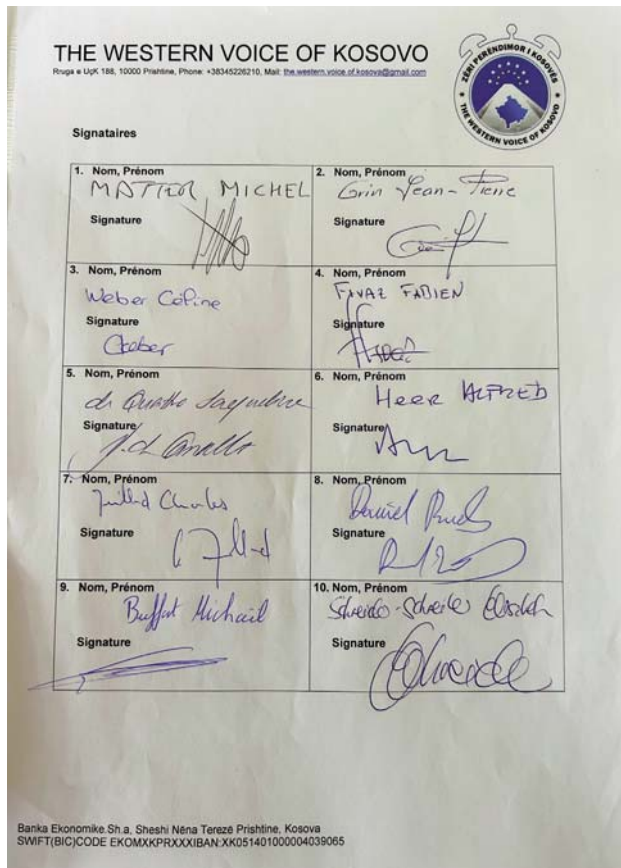 THE WESTERN VOICE OF KOSOVO
Rruga e UçK 188, 10000 Prishtine, Phone: +38345226210, Mail: the.western.voice.of.kosova@gmail.com
ZËRI PERËNDIMOR I KOSOVËS
THE WESTERN VOICE OF KOSOVO
Signataires
1. Nom, Prénom
MATTER MICHEL
Signature
2. Nom, Prénom
Grin Jean-Pierre
Signature
3. Nom, Prénom
Weber Céline
Signature
CWeber
4. Nom, Prénom
FIVAZ FABIEN
Signature
5. Nom, Prénom
de Quattro Jacqueline
Signature
6. Nom, Prénom
Heer ALFRED
Signature
7. Nom, Prénom
Juillard Charles
Signature
8. Nom, Prénom
Daniel
Signature
9. Nom, Prénom
Buffat Michaël
Signature
10. Nom, Prénom
Signature
Banka Ekonomike.Sh.a, Sheshi Nëna Terezë Prishtine, Kosova
SWIFT(BIC)CODE EKOMXKPRXXXIBAN:XK051401000004039065